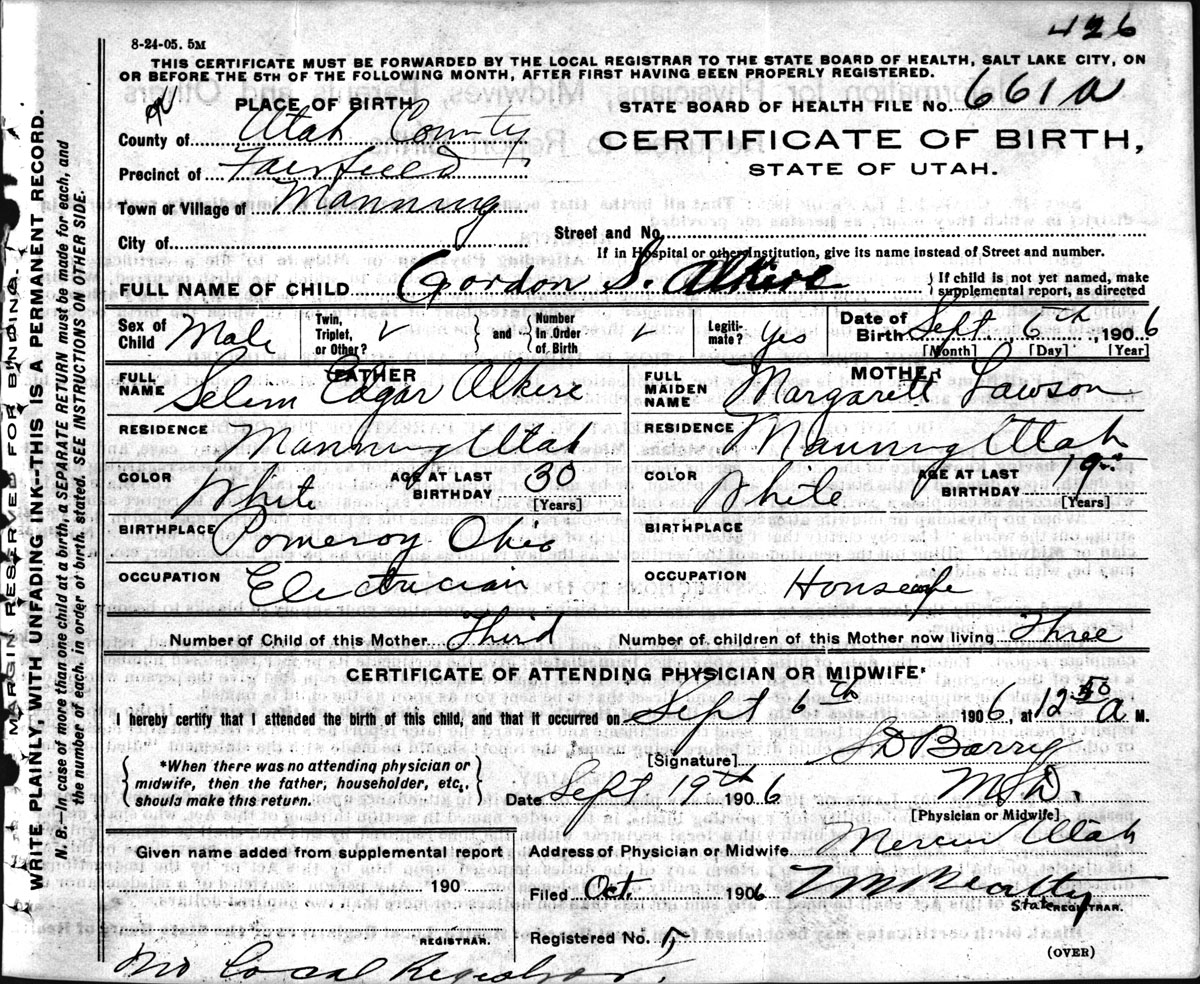 426
8-24-05. 5M
THIS CERTIFICATE MUST BE FORWARDED BY THE LOCAL REGISTRAR TO THE STATE BOARD OF HEALTH, SALT LAKE CITY, ON
OR BEFORE THE 5TH OF THE FOLLOWING MONTH, AFTER FIRST HAVING BEEN PROPERLY REGISTERED.
PLACE OF BIRTH
STATE BOARD OF HEALTH FILE No. 661 A
County of Utah County
CERTIFICATE OF BIRTH,
Precinct of Fairfield
STATE OF UTAH.
Town or Village of Manning
City of
Street and No.
If in Hospital or other Institution, give its name instead of Street and number.
FULL NAME OF CHILD Gordon S. Alkire
If child is not yet named, make supplemental report, as directed
Sex of Child Male
Twin, Triplet, or Other? ✓
and
Number In Order of Birth ✓
Legitimate? Yes
Date of Birth Sept 6th, 1906
[Month] [Day] [Year]
FATHER
FULL NAME Selem Edgar Alkire
RESIDENCE Manning Utah
COLOR White AGE AT LAST BIRTHDAY 30
[Years]
BIRTHPLACE Pomeroy Ohio
OCCUPATION Electrician
MOTHER
FULL MAIDEN NAME Margarett Lawson
RESIDENCE Manning Utah
COLOR White AGE AT LAST BIRTHDAY 19
[Years]
BIRTHPLACE
OCCUPATION Housewife
Number of Child of this Mother Third Number of children of this Mother now living Three
CERTIFICATE OF ATTENDING PHYSICIAN OR MIDWIFE*
I hereby certify that I attended the birth of this child, and that it occurred on Sept 6th 1906, at 12 50 A M.
*When there was no attending physician or
midwife, then the father, householder, etc.,
should make this return.
[Signature] S D Barry
Date Sept 19th 1906 M.D.
[Physician or Midwife]
Given name added from supplemental report
190
REGISTRAR.
Address of Physician or Midwife Mercur Utah
Filed Oct. 1906
State REGISTRAR.
Registered No. 5
(OVER)
No Local Registrar.
MARGIN RESERVED FOR BINDING.
WRITE PLAINLY, WITH UNFADING INK—THIS IS A PERMANENT RECORD.
N. B.—In case of more than one child at a birth, a SEPARATE RETURN must be made for each, and
the number of each, in order of birth, stated. SEE INSTRUCTIONS ON OTHER SIDE.